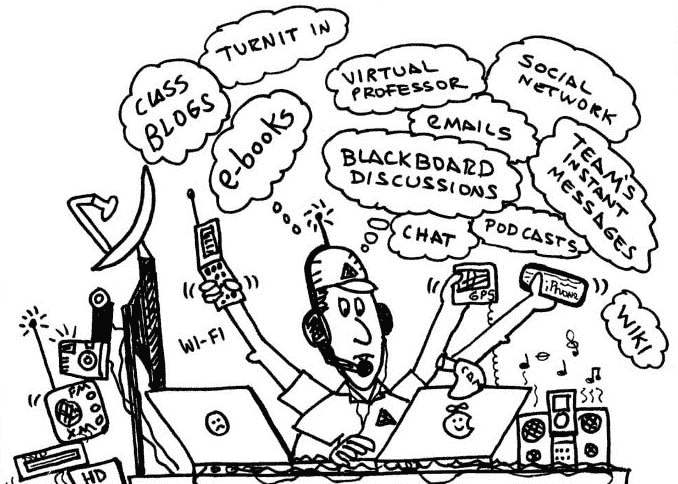 TURNIT IN
CLASS
BLOGS
e-books
VIRTUAL
PROFESSOR
SOCIAL
NETWORK
emails
BLACKBOARD
DISCUSSIONS
TEAM'S
INSTANT
MESSAGES
CHAT
PODCASTS
GPS
iPHONE
WIKI
WI-FI
CAM
FM
XM
HD